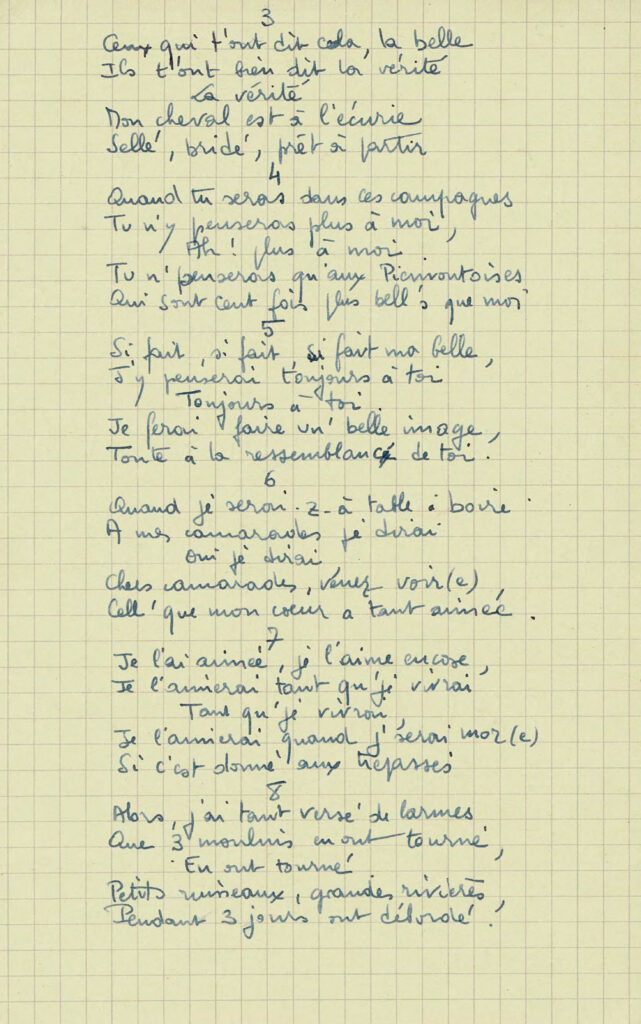 3
Ceux qui t'ont dit cela, la belle
Ils t'ont bien dit la vérité
La vérité
Mon cheval est à l'écurie
Sellé, bridé, prêt à partir
4
Quand tu seras dans ces campagnes
Tu n'y penseras plus à moi,
Ah ! plus à moi
Tu n'penseras qu'aux Piémontoises
Qui sont cent fois plus bell's que moi
5
Si fait, si fait, si fait ma belle,
J'y penserai toujours à toi
Toujours à toi.
Je ferai faire un' belle image,
Toute à la ressemblance de toi.
6
Quand je serai-z-à table à boire
A mes camarades je dirai
Oui je dirai
Chers camarades, venez voir(e)
Cell' que mon coeur a tant aimée.
7
Je l'ai aimée, je l'aime encore,
Je l'aimerai tant qu'je vivrai
Tant qu'je vivrai,
Je l'aimerai quand j'serai mor(e)
Si c'est donné aux trépassés
8
Alors, j'ai tant versé de larmes
Que 3 moulins en ont tourné,
En ont tourné
Petits ruisseaux, grandes rivières,
Pendant 3 jours ont débordé !